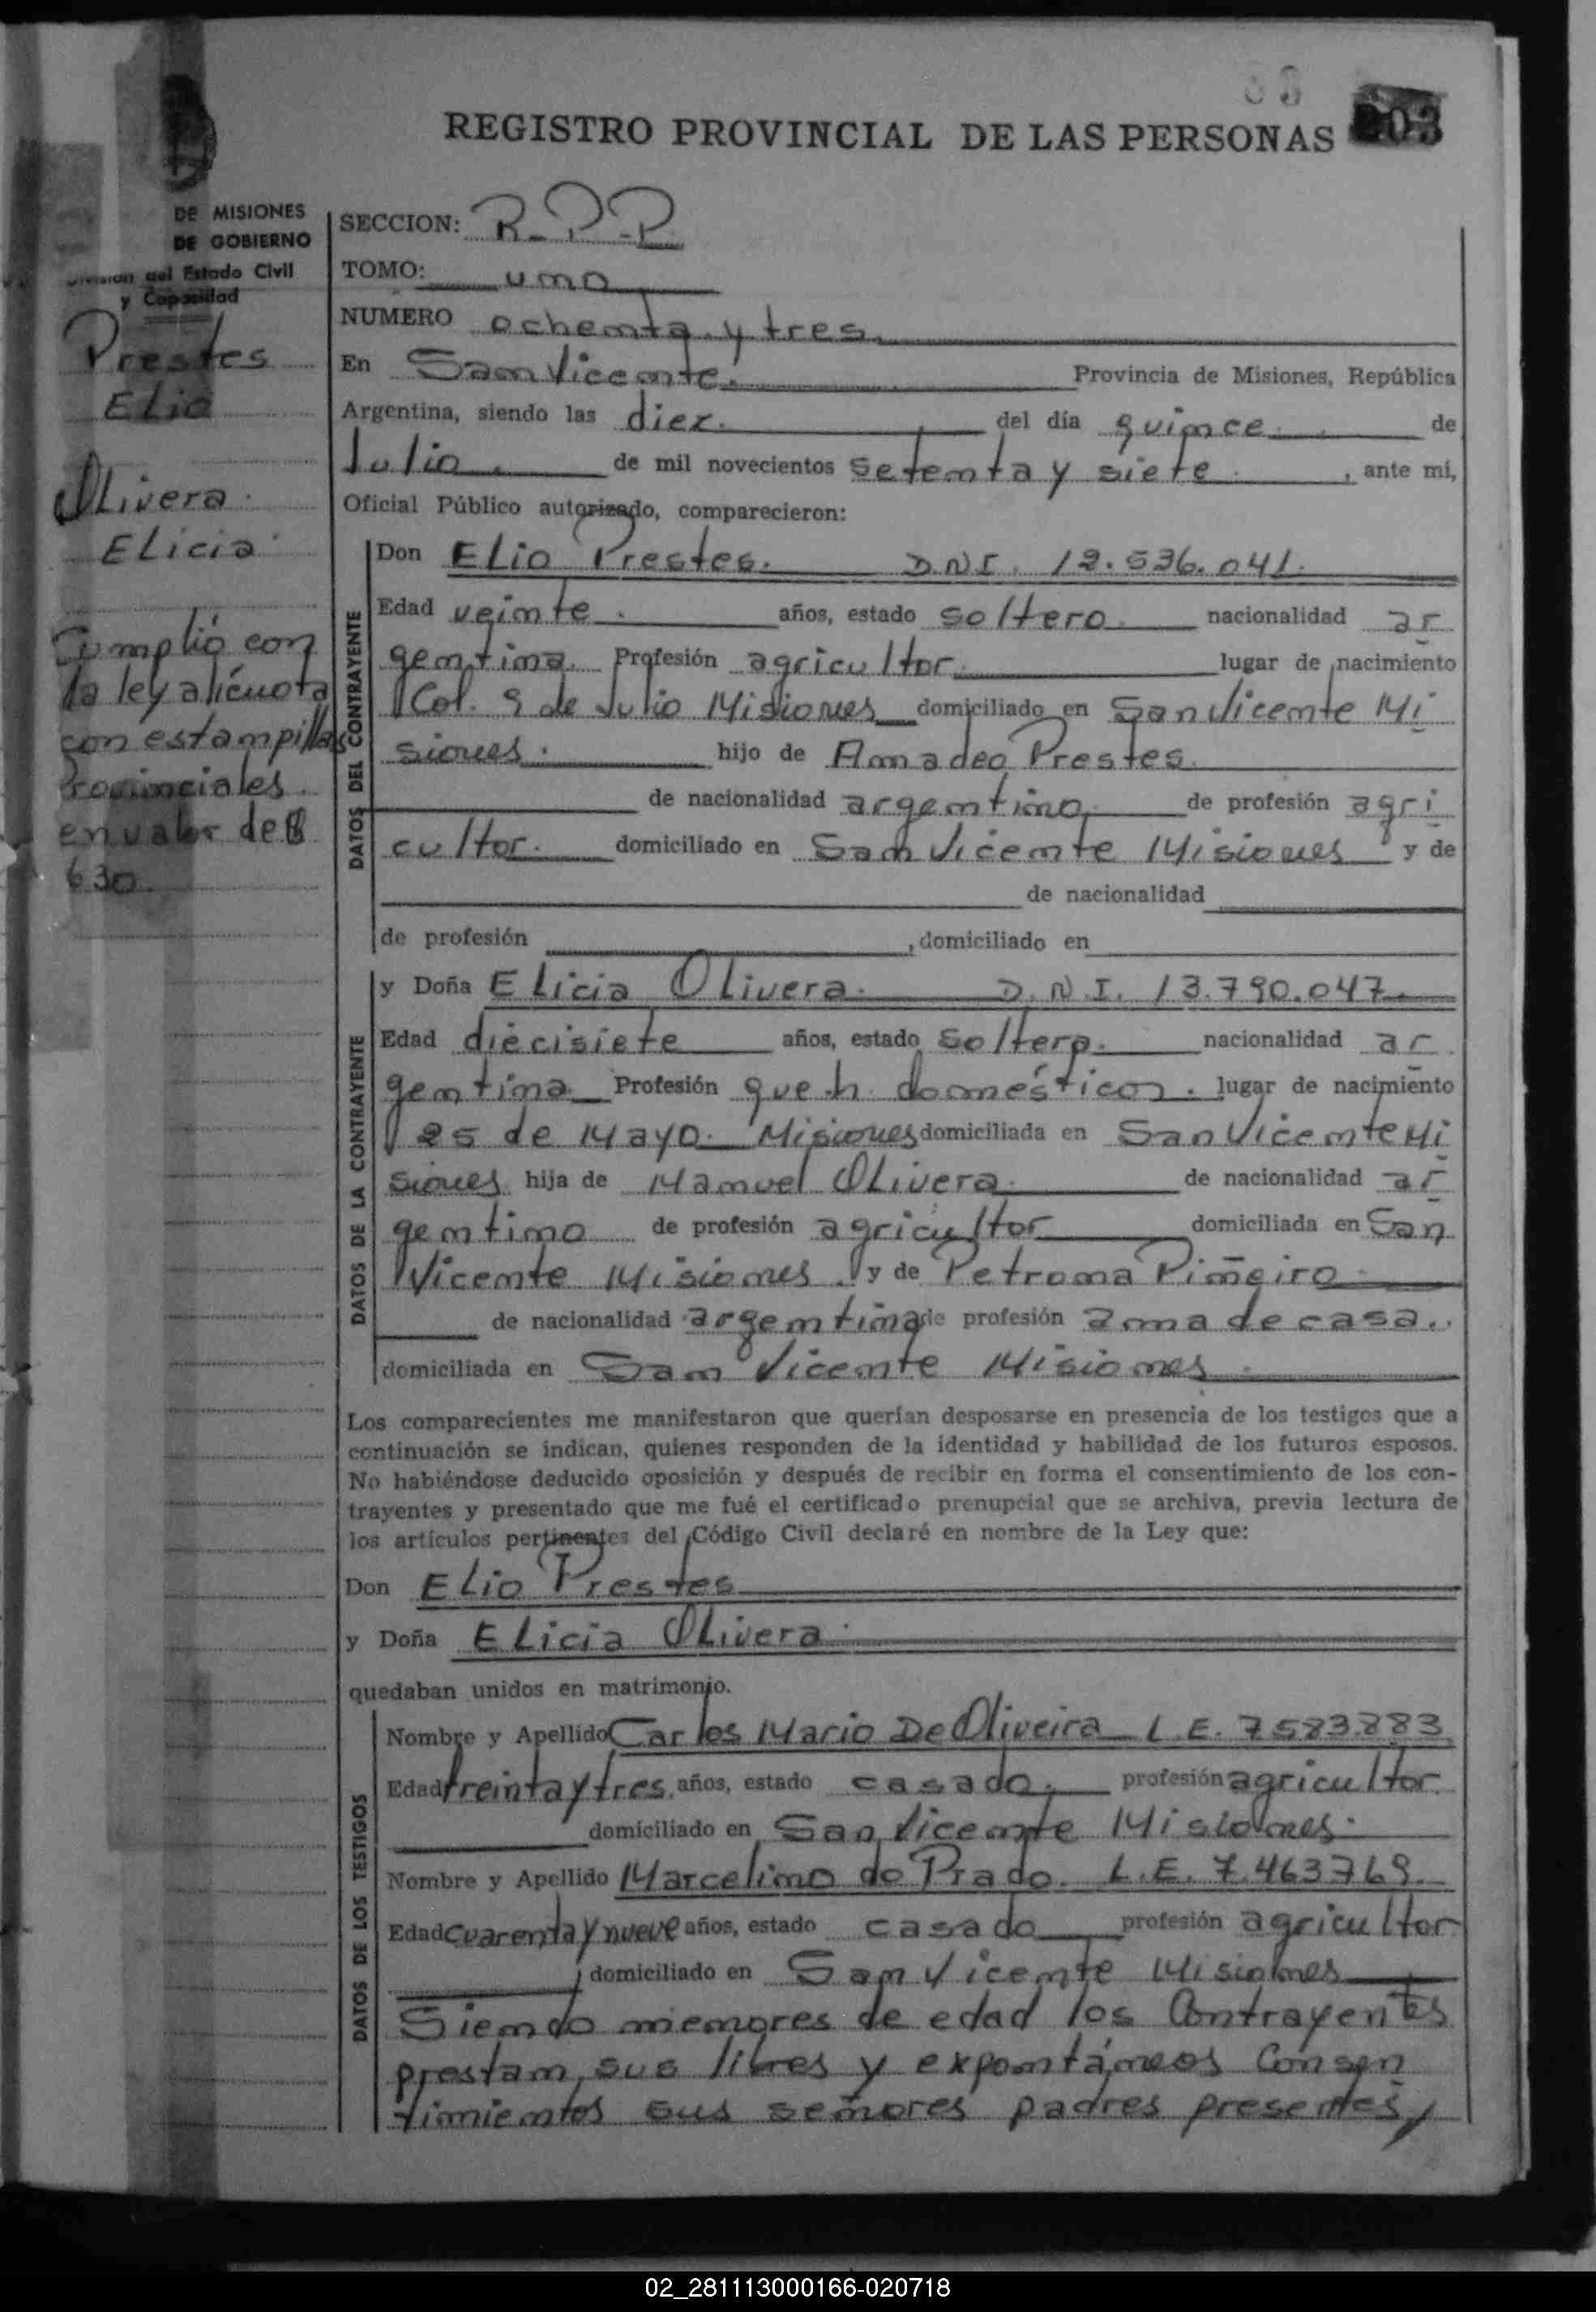 83
203
REGISTRO PROVINCIAL DE LAS PERSONAS
DE MISIONES
DE GOBIERNO
División del Estado Civil
y Capacidad
Prestes
Elio
Olivera.
Elicia
Cumplió con
la ley alícuota
con estampillas
Provinciales
en valor de $
630.
SECCION: R.P.P.
TOMO: uno
NUMERO ochenta y tres.
En San Vicente. Provincia de Misiones, República
Argentina, siendo las diez. del día quince. de
Julio. de mil novecientos setenta y siete. , ante mi,
Oficial Público autorizado, comparecieron:
DATOS DEL CONTRAYENTE
Don Elio Prestes. D.N.I. 12.536.041.
Edad veinte. años, estado soltero. nacionalidad ar
gentina. Profesión agricultor. lugar de nacimiento
Col. 9 de Julio Misiones domiciliado en San Vicente Mi
siones. hijo de Amadeo Prestes.
de nacionalidad argentino. de profesión agri
cultor. domiciliado en San Vicente Misiones y de
de nacionalidad
de profesión , domiciliado en
DATOS DE LA CONTRAYENTE
y Doña Elicia Olivera. D.N.I. 13.790.047.
Edad diecisiete años, estado soltera. nacionalidad ar
gentina Profesión que h. domésticos. lugar de nacimiento
25 de Mayo. Misiones domiciliada en San Vicente Mi
siones hija de Manuel Olivera. de nacionalidad ar
gentino de profesión agricultor domiciliada en San
Vicente Misiones. y de Petrona Piñeiro
de nacionalidad argentina de profesión ama de casa.
domiciliada en San Vicente Misiones.
Los comparecientes me manifestaron que querían desposarse en presencia de los testigos que a
continuación se indican, quienes responden de la identidad y habilidad de los futuros esposos.
No habiéndose deducido oposición y después de recibir en forma el consentimiento de los con-
trayentes y presentado que me fué el certificado prenupcial que se archiva, previa lectura de
los artículos pertinentes del Código Civil declaré en nombre de la Ley que:
Don Elio Prestes
y Doña Elicia Olivera.
quedaban unidos en matrimonio.
DATOS DE LOS TESTIGOS
Nombre y Apellido Carlos Mario De Oliveira L.E. 7583.883
Edad treinta y tres. años, estado casado. profesión agricultor
domiciliado en San Vicente Misiones.
Nombre y Apellido Marcelino do Prado. L.E. 7.463769.
Edad cuarenta y nueve años, estado casado profesión agricultor
domiciliado en San Vicente Misiones
Siendo menores de edad los Contrayentes
prestan sus libres y expontáneos Consen
timientos sus señores padres presentes,
02_281113000166-020718